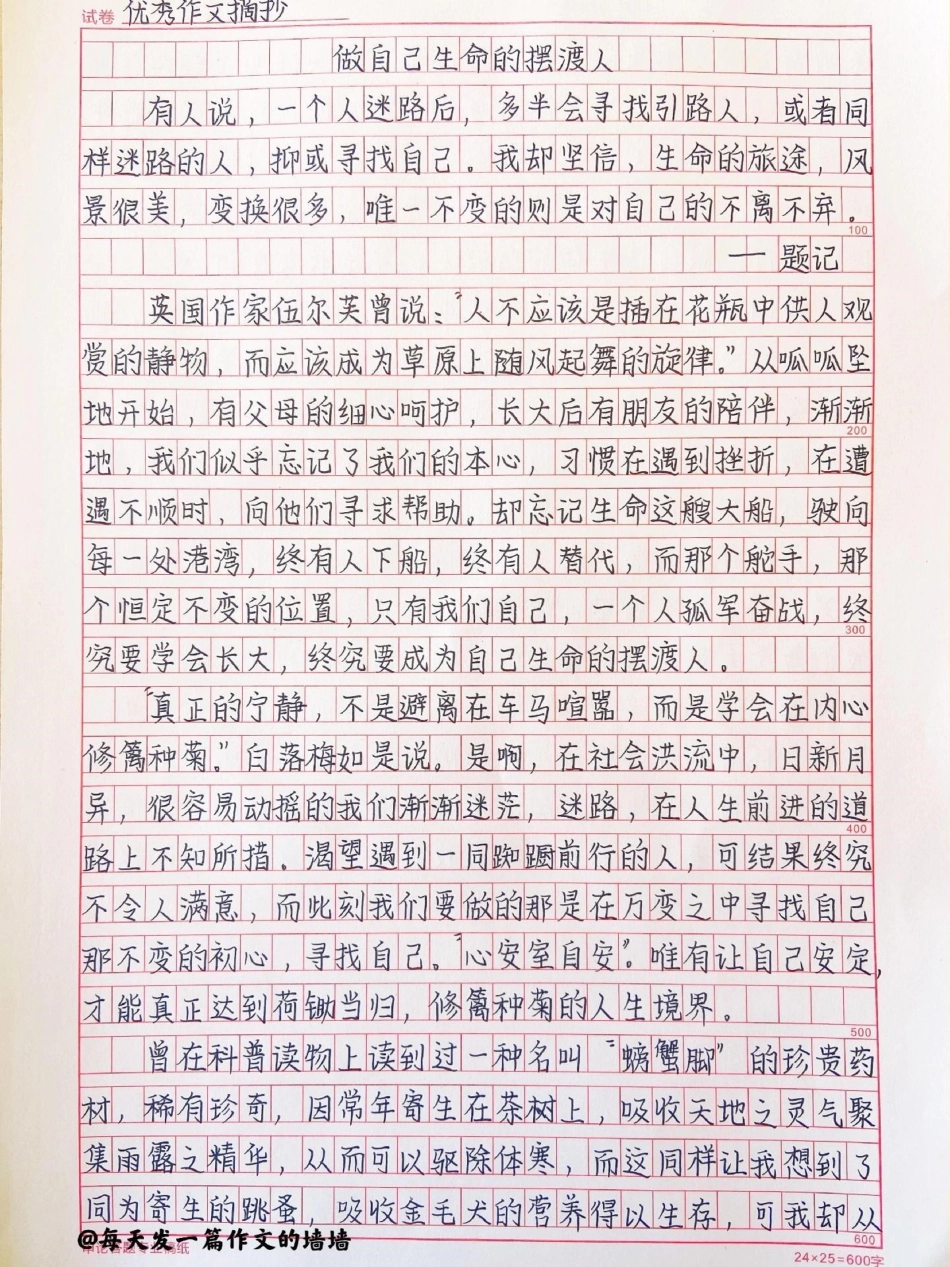 试卷 优秀作文摘抄
做自己生命的摆渡人
有人说，一个人迷路后，多半会寻找引路人，或者同
样迷路的人，抑或寻找自己。我却坚信，生命的旅途，风
景很美，变换很多，唯一不变的则是对自己的不离不弃。
100
— 题记
英国作家伍尔芙曾说：“人不应该是插在花瓶中供人观
赏的静物，而应该成为草原上随风起舞的旋律。”从呱呱坠
地开始，有父母的细心呵护，长大后有朋友的陪伴，渐渐
200
地，我们似乎忘记了我们的本心，习惯在遇到挫折，在遭
遇不顺时，向他们寻求帮助。却忘记生命这艘大船，驶向
每一处港湾，终有人下船，终有人替代，而那个舵手，那
个恒定不变的位置，只有我们自己，一个人孤军奋战，终
300
究要学会长大，终究要成为自己生命的摆渡人。
“真正的宁静，不是避离在车马喧嚣，而是学会在内心
修篱种菊。”白落梅如是说。是啊，在社会洪流中，日新月
异，很容易动摇的我们渐渐迷茫，迷路，在人生前进的道
400
路上不知所措。渴望遇到一同踟蹰前行的人，可结果终究
不令人满意，而此刻我们要做的那是在万变之中寻找自己
那不变的初心，寻找自己。“心安室自安”。唯有让自己安定，
才能真正达到荷锄当归，修篱种菊的人生境界。
500
曾在科普读物上读到过一种名叫“螃蟹脚”的珍贵药
材，稀有珍奇，因常年寄生在茶树上，吸收天地之灵气聚
集雨露之精华，从而可以驱除体寒，而这同样让我想到了
同为寄生的跳蚤，吸收金毛犬的营养得以生存，可我却从
600
@每天发一篇作文的墙墙
24×25=600字